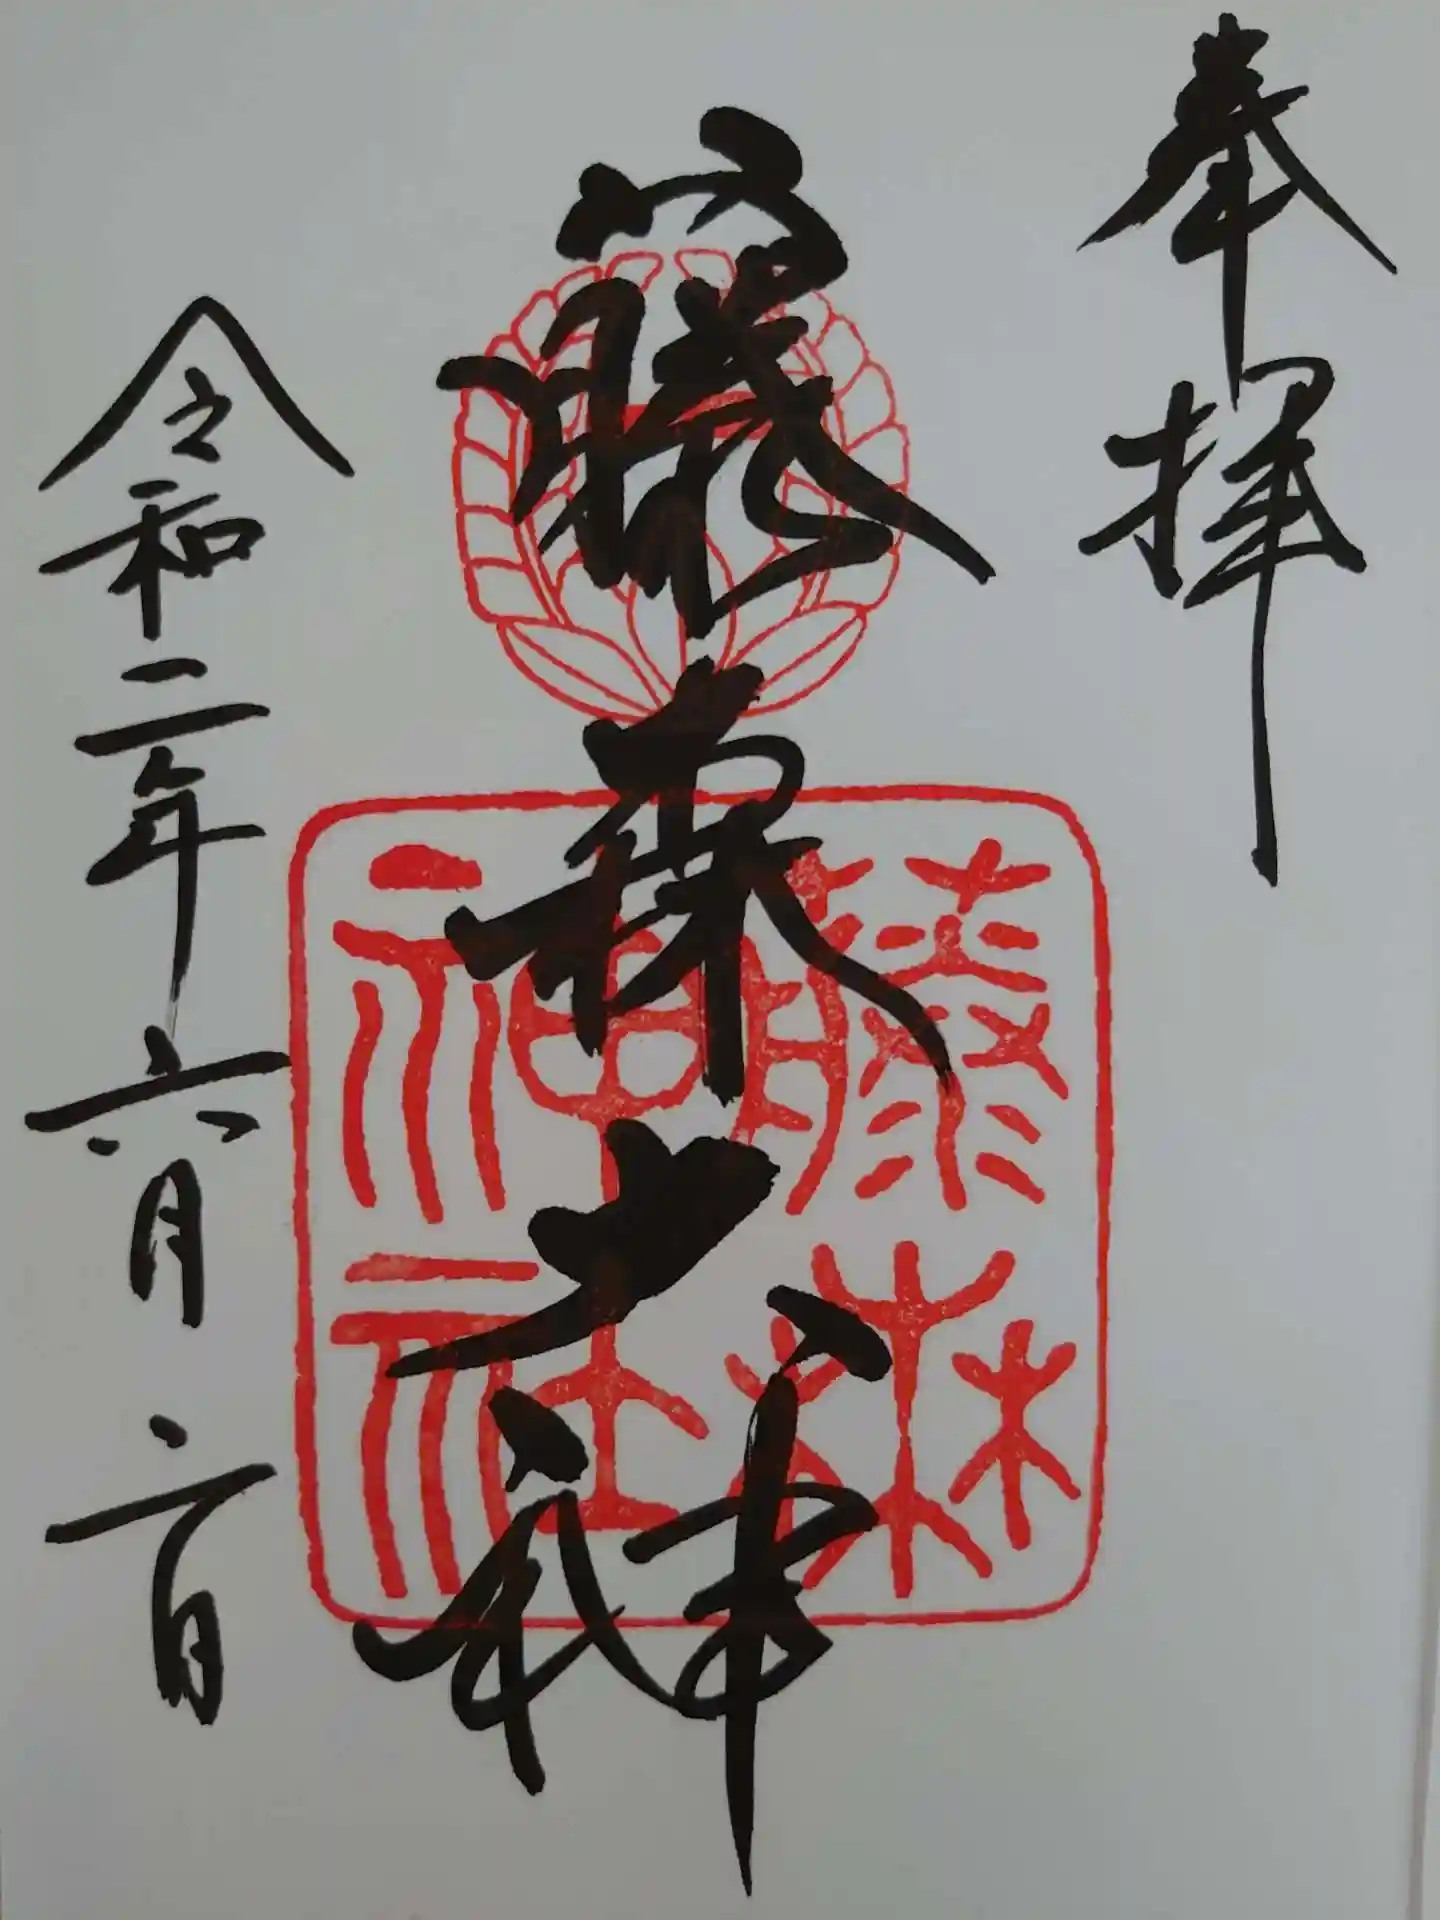 奉拝
藤森大神
藤森
神社
令和二年六月 日